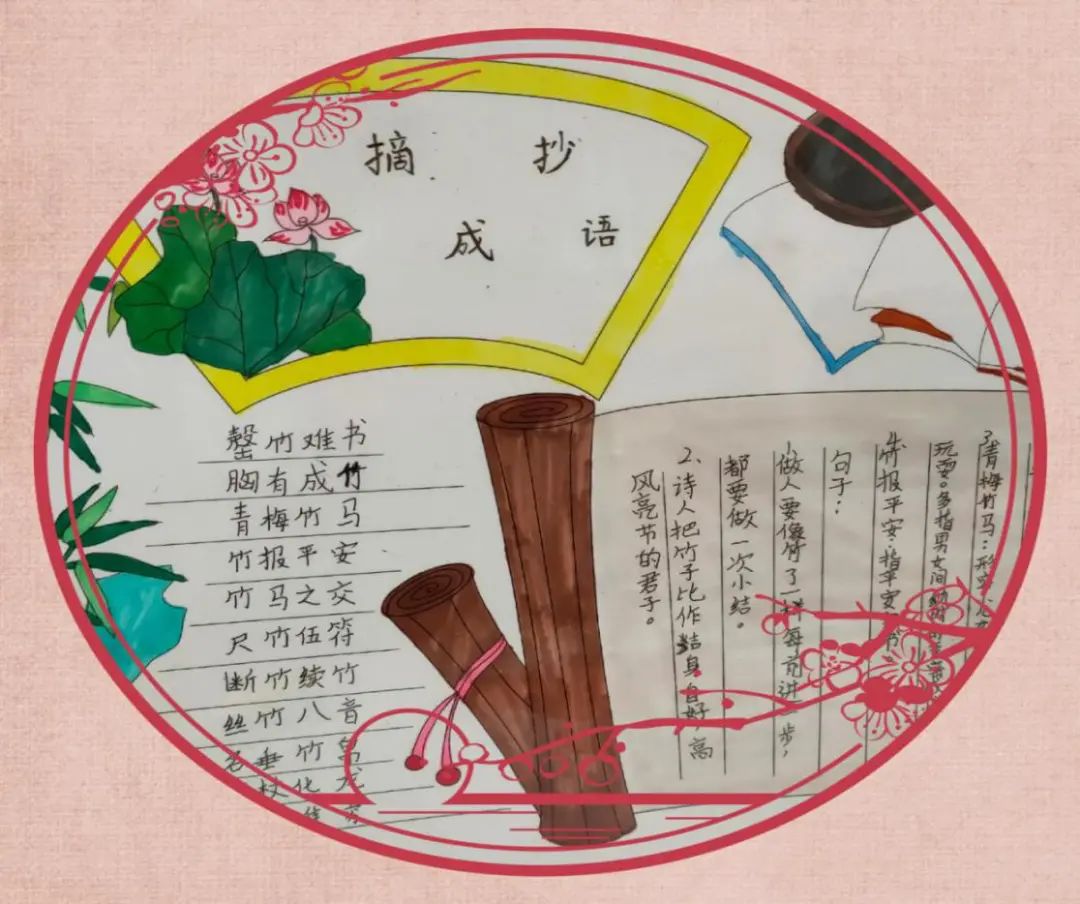 摘 抄
成 语
罄竹难书
胸有成竹
青梅竹马
竹报平安
竹马之交
尺竹伍符
断竹续竹
丝竹八音
名垂竹帛
杖化龙
3、青梅竹马:形容
玩耍。多指男女间幼
4、竹报平安:指平安
句子:
1、做人要像竹了一样每前进一步,
都要做一次小结。
2、诗人把竹子比作结身自好、高
风亮节的君子。